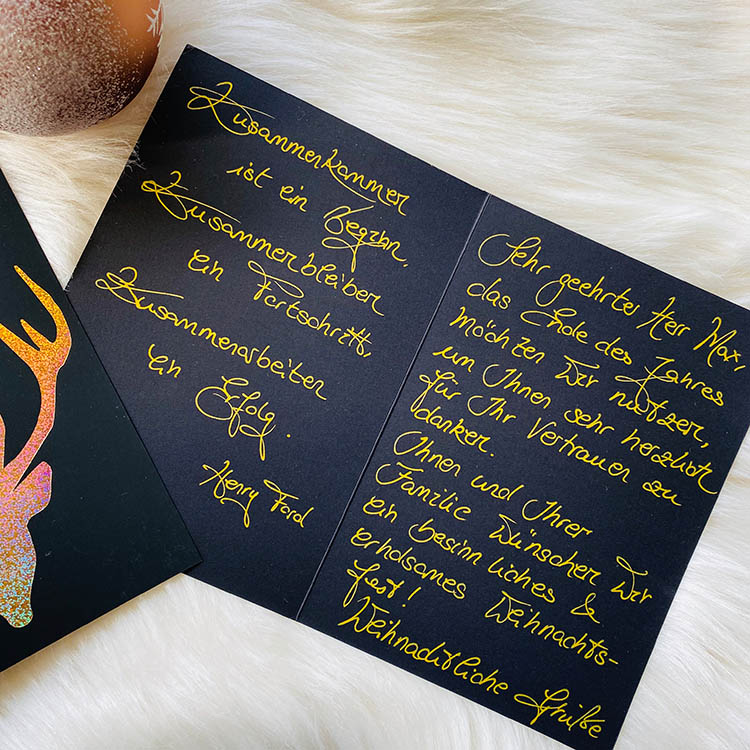 Zusammenkommen
ist ein Beginn,
Zusammenbleiben
ein Fortschritt,
Zusammenarbeiten
ein Erfolg.
Henry Ford
Sehr geehrter Herr Max,
das Ende des Jahres
möchten wir nutzen,
um Ihnen sehr herzlich
für Ihr Vertrauen zu
danken.
Ihnen und Ihrer
Familie wünschen wir
ein besinnliches &
erholsames Weihnachts-
fest!
Weihnachtliche Grüße